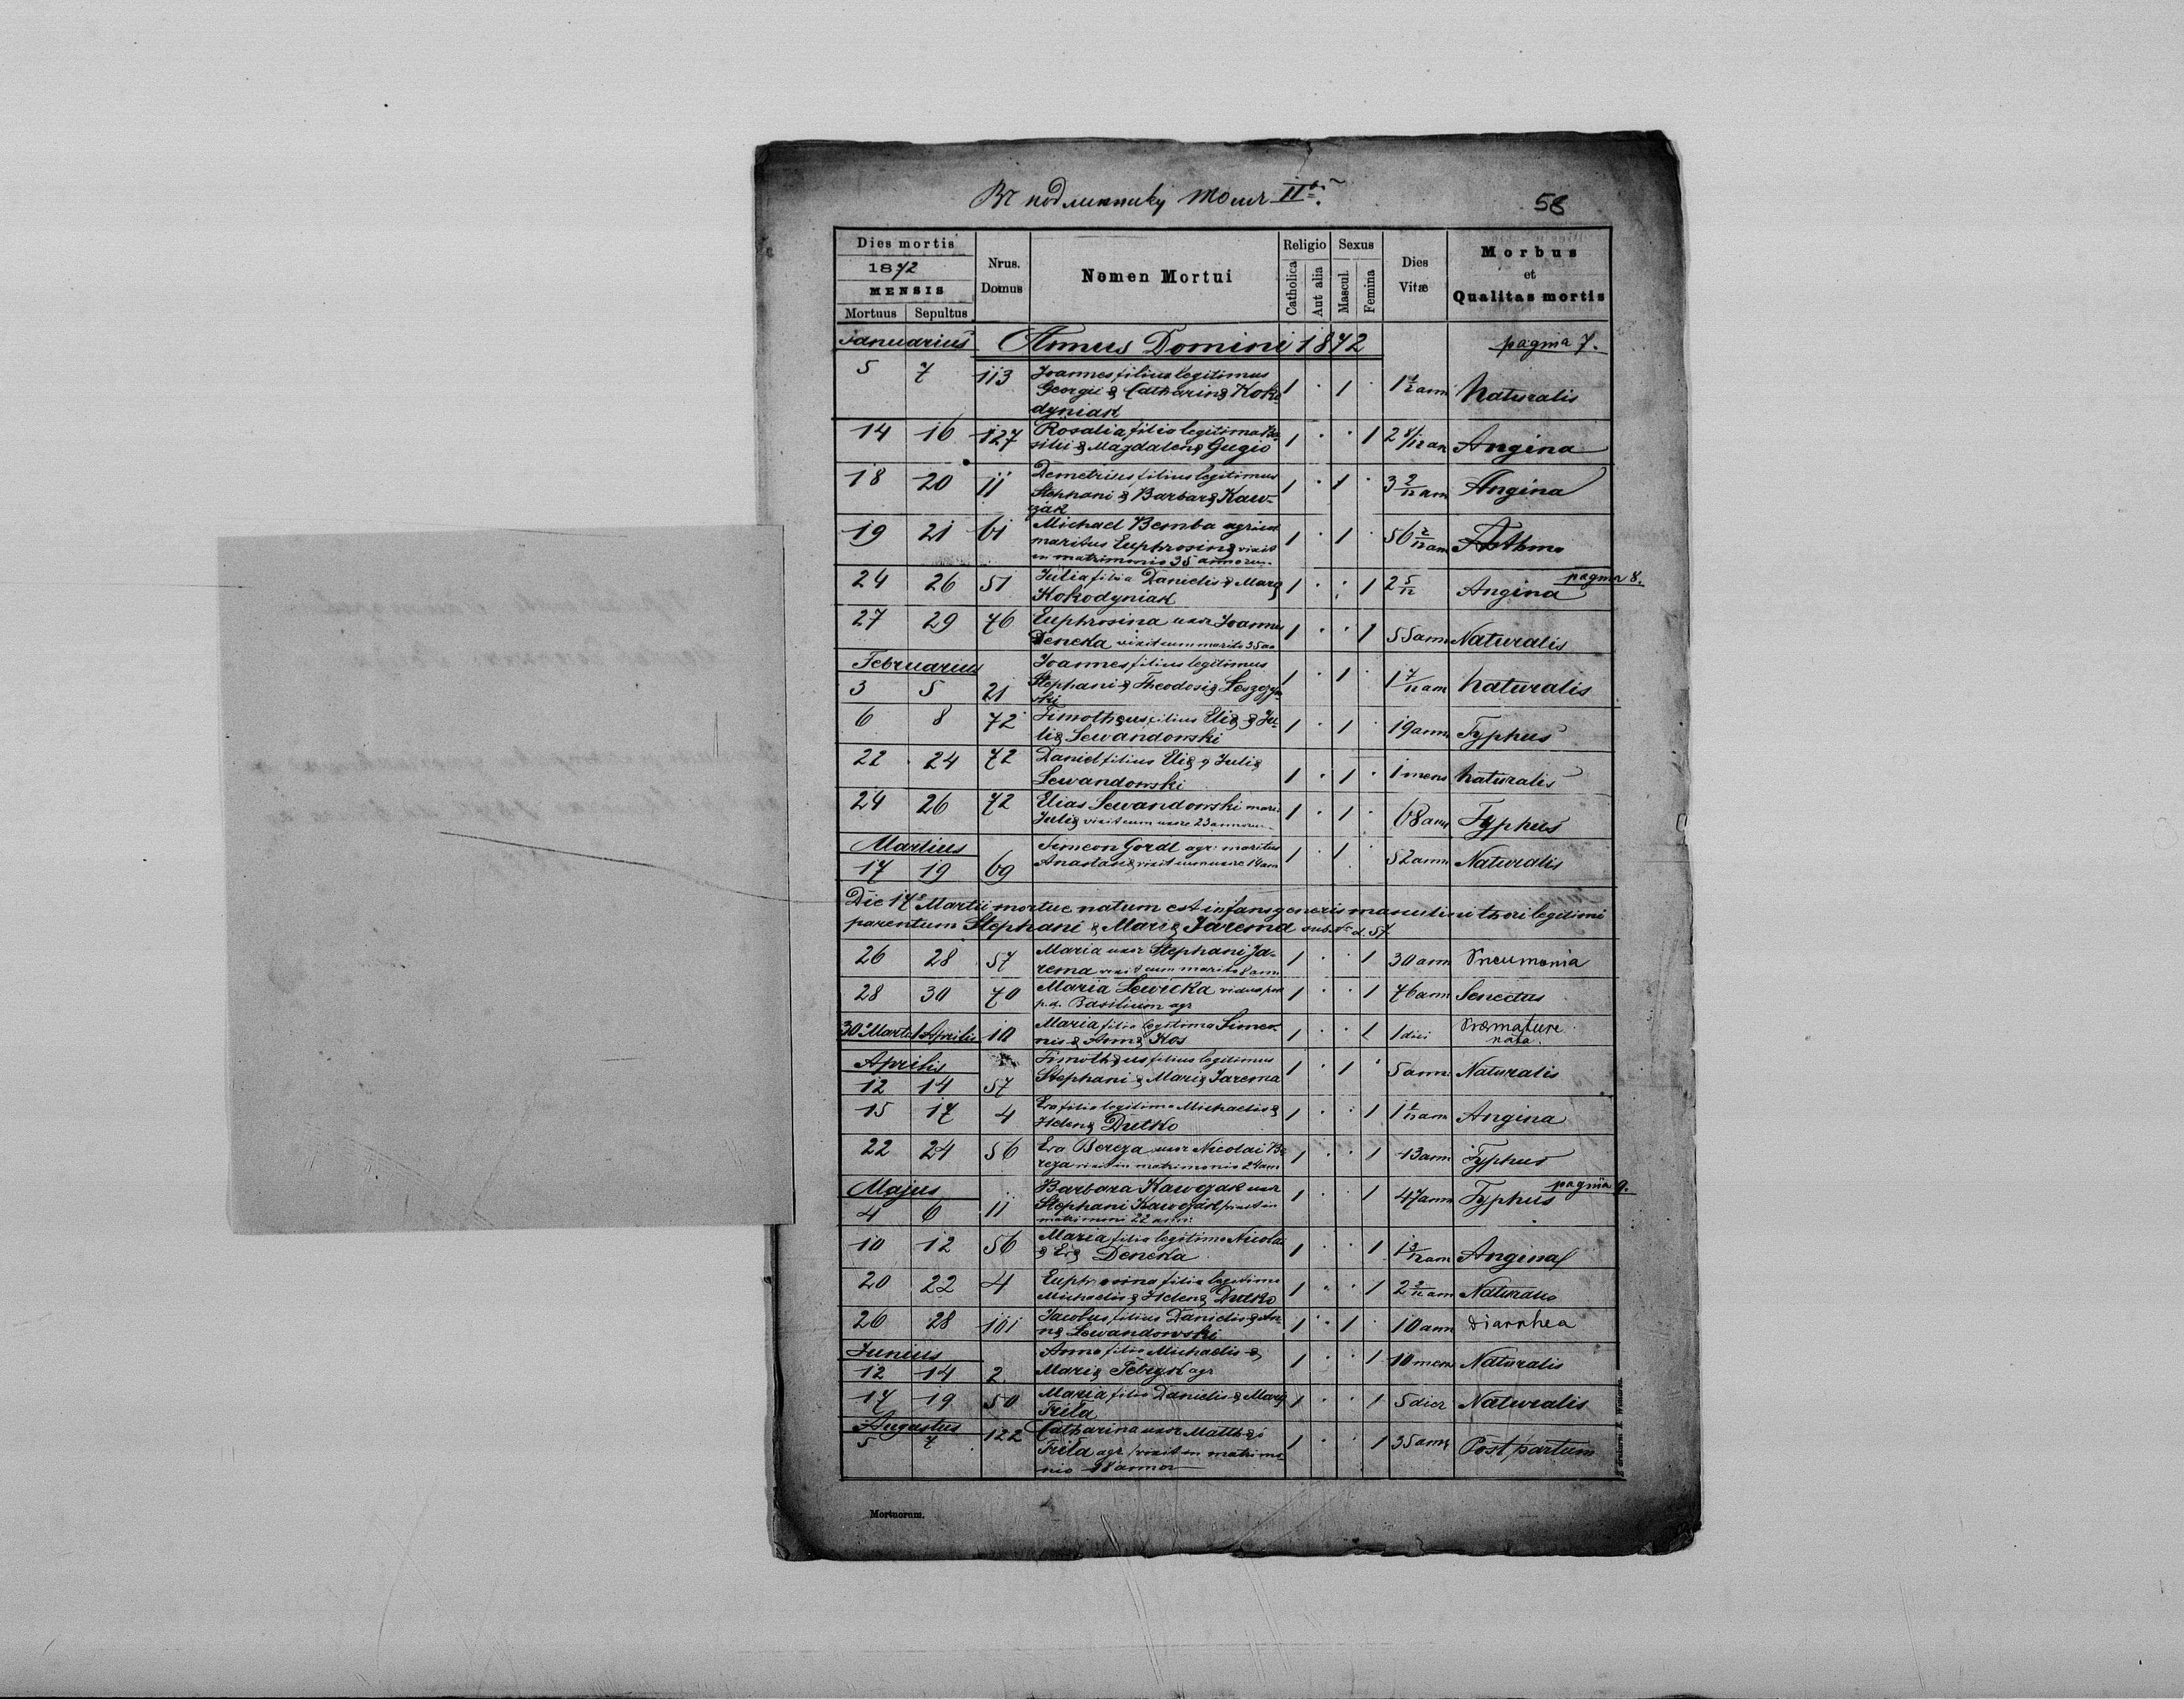 Въ подлиннику Томъ II
58
Dies mortis
1872
MENSIS
Mortuus Sepultus
Nrus. Domus
Nomen Mortui
Religio
Catholica Aut alia
Sexus
Mascul. Femina
Dies Vitæ
Morbus et Qualitas mortis
Januarius Annus Domini 1872 pagina 7.
5 7 113 Joannes filius legitimus 1 · 1 · Naturalis
Georgii & Catharinę Koko-
dyniak
14 16 127 Rosalia filia legitima Ba- 1 · · 1 Angina
silii & Magdalenę Gugio
18 20 11 Demetrius filius legitimus 1 · 1 · 3 2/12 ann Angina
Stephani & Barbarę Kaw-
czak
19 21 61 Michael Bemba agricol 1 · 1 · 56 2/12 ann Asthma
maritus Euphrosinę vixit
in matrimonio 35 annorum
24 26 51 Julia filia Danielis & Marię 1 · · 1 2 5/12 Angina pagina 8.
Kokodyniak
27 29 76 Euphrosina uxor Joannis 1 · · 1 55 ann Naturalis
Deneka vixit cum marito 35 an
Februarius Joannes filius legitimus
3 5 21 Stephani & Theodosię 1 · 1 · 1 7/12 ann Naturalis
ski
6 8 72 Timothęus filius Elię & Ju- 1 · 1 · 19 ann Typhus
lię Lewandowski
22 24 72 Daniel filius Elię & Julię 1 · 1 · 1 mens Naturalis
Lewandowski
24 26 72 Elias Lewandowski mari: 1 · 1 · 68 ann Typhus
Julię vixit cum uxore 23 annorum
Martius Simeon Gordl agr: maritus
17 19 69 Anastasię vixit cum uxore 14 ann 1 · 1 · 52 ann Naturalis
Die 17ª Martii mortue natum est infans generis masculini thori legitimi
parentum Stephani & Marię Jarema sub Nr. d. 57.
26 28 57 Maria uxor Stephani Ja- 1 · · 1 30 ann Pneumonia
rema vixit cum marito 8 ann
28 30 70 Maria Lewicka vidua post 1 · · 1 76 ann Senectus
p.d. Basilium agr
30 Martii 1 Aprilis 10 Maria filia legitima Simeo- 1 · · 1 1 diei Præmature
nis & Annę Kos nata.
Aprilis Timothęus filius legitimus
12 14 57 Stephani & Marię Jarema 1 · 1 · 5 ann Naturalis
15 17 4 Eva filia legitima Michaelis & 1 · · 1 Angina
Helenę Dutko
22 24 56 Eva Bereza uxor Nicolai Be- 1 · · 1 43 ann Typhus
reza vixit in matrimonio 24 ann
Majus Barbara Kawczak uxor pagina 9.
4 6 11 Stephani Kawczak vixit in 1 · · 1 47 ann Typhus
matrimoni 22 ann:
10 12 56 Maria filia legitima Nicolai 1 · · 1 1 3/12 ann Angina
& Evę Deneka
20 22 4 Euphrosina filia legitima 1 · · 1 2 2/12 ann Naturalis
Michaelis & Helenę Dutko
26 28 101 Jacobus filius Danielis & An- 1 · 1 · 10 ann Diarrhea
nę Lewandowski
Junius Anna filia Michaelis &
12 14 2 Marię agr 1 · · 1 10 mens Naturalis
17 19 50 Maria filia Danielis & Marię 1 · · 1 5 dier Naturalis
Trila
Augustus Catharina uxor Matthęi
5 7 122 Trila agr vixit in matrimo- 1 · · 1 35 ann Post partum
nio 18 annor
Mortuorum.
Z drukarni K. Winiarza.